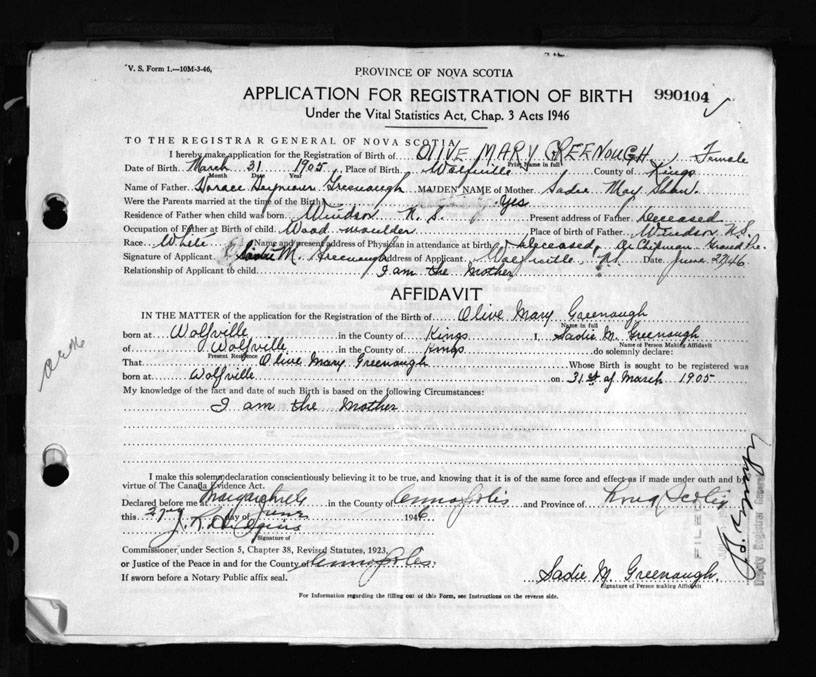 V. S. Form 1.—10M-3-46,
PROVINCE OF NOVA SCOTIA
APPLICATION FOR REGISTRATION OF BIRTH 990104
Under the Vital Statistics Act, Chap. 3 Acts 1946
TO THE REGISTRAR GENERAL OF NOVA SCOTIA
I hereby make application for the Registration of Birth of OLIVE MARY GREENOUGH Female
Print Name in full
Date of Birth March 31 1905 Place of Birth Wolfville County of Kings
Month Date Year
Name of Father Horace Greenough MAIDEN NAME of Mother Sadie May Shaw.
Were the Parents married at the time of the Birth Yes
Residence of Father when child was born Windsor N. S. Present address of Father Deceased
Occupation of Father at Birth of child Wood moulder Place of birth of Father Windsor N.S.
Race White Name and present address of Physician in attendance at birth Deceased Dr Chipman Grand Pre.
Signature of Applicant Sadie M. Greenough Address of Applicant Wolfville N.S. Date June 27/46
Relationship of Applicant to child I am the Mother
AFFIDAVIT
IN THE MATTER of the application for the Registration of the Birth of Olive Mary Greenough
Name in full
born at Wolfville in the County of Kings I, Sadie M. Greenough
Name of Person Making Affidavit
of Wolfville in the County of Kings do solemnly declare:
Present Residence
That Olive Mary Greenough Whose Birth is sought to be registered was
born at Wolfville on 31st of March 1905
My knowledge of the fact and date of such Birth is based on the following Circumstances:
I am the Mother
I make this solemn declaration conscientiously believing it to be true, and knowing that it is of the same force and effect as if made under oath and by
virtue of The Canada Evidence Act.
Declared before me at Margaretville in the County of Annapolis and Province of Nova Scotia
this 27th day of June 1946
Signature of
Commissioner under Section 5, Chapter 38, Revised Statutes, 1923,
or Justice of the Peace in and for the County of Annapolis.
If sworn before a Notary Public affix seal.
Sadie M. Greenough.
Signature of Person making Affidavit
For Information regarding the filling out of this Form, see Instructions on the reverse side.
FILED
Deputy Registrar General